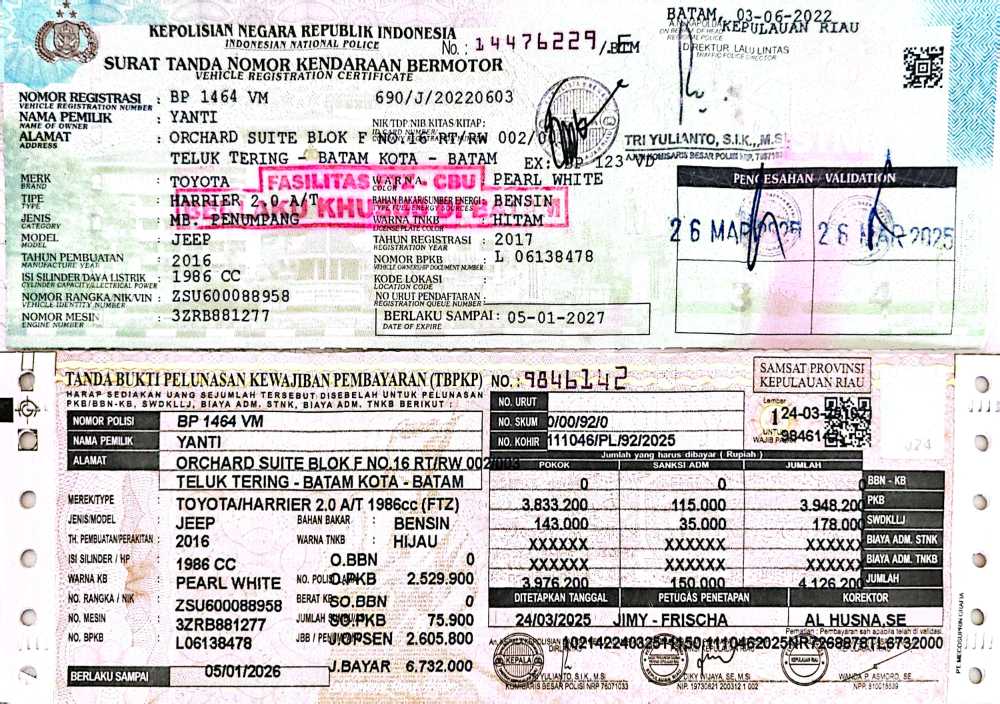 KEPOLISIAN NEGARA REPUBLIK INDONESIA
INDONESIAN NATIONAL POLICE
No.: 14476229 /
SURAT TANDA NOMOR KENDARAAN BERMOTOR
VEHICLE REGISTRATION CERTIFICATE
BATAM, 03-06-2022
KEPULAUAN RIAU
DIREKTUR LALU LINTAS
TRAFFIC POLICE DIRECTOR
TRI YULIANTO, S.I.K., M.SI
NOMOR REGISTRASI : BP 1464 VM 690/J/20220603
VEHICLE REGISTRATION NUMBER
NAMA PEMILIK : YANTI NIK/TDP/NIB/KITAS/KITAP:
NAME OF OWNER
ALAMAT : ORCHARD SUITE BLOK F NO.16 RT/RW 002/
ADDRESS
TELUK TERING - BATAM KOTA - BATAM EX: BP 123
MERK : TOYOTA WARNA : PEARL WHITE
BRAND COLOR
FASILITAS CBU
TIPE : HARRIER 2.0 A/T BAHAN BAKAR/SUMBER ENERGI : BENSIN
TYPE TYPE FUEL/ENERGY SOURCES
JENIS : MB. PENUMPANG WARNA TNKB : HITAM
CATEGORY LICENSE PLATE COLOR
MODEL : JEEP TAHUN REGISTRASI : 2017
MODEL REGISTRATION YEAR
TAHUN PEMBUATAN : 2016 NOMOR BPKB : L 06138478
MANUFACTURE YEAR VEHICLE OWNERSHIP DOCUMENT NUMBER
ISI SILINDER/DAYA LISTRIK : 1986 CC KODE LOKASI :
CYLINDER CAPACITY/ELECTRICAL POWER LOCATION CODE
NOMOR RANGKA/NIK/VIN : ZSU600088958 NO URUT PENDAFTARAN :
VEHICLE IDENTITY NUMBER REGISTRATION QUEUE NUMBER
NOMOR MESIN : 3ZRB881277 BERLAKU SAMPAI : 05-01-2027
ENGINE NUMBER DATE OF EXPIRE
PENGESAHAN / VALIDATION
26 MAR 2025 26 MAR 2025
3
TANDA BUKTI PELUNASAN KEWAJIBAN PEMBAYARAN (TBPKP) NO.: 9846142
HARAP SEDIAKAN UANG SEJUMLAH TERSEBUT DISEBELAH UNTUK PELUNASAN
PKB/BBN-KB, SWDKLLJ, BIAYA ADM. STNK, BIAYA ADM. TNKB BERIKUT :
SAMSAT PROVINSI
KEPULAUAN RIAU
NO. URUT
NO. SKUM 0/00/92/0
NO. KOHIR 111046/PL/92/2025
Lembar
1
24-03-
UNTUK
WAJIB PAJAK
984614
024
NOMOR POLISI BP 1464 VM
NAMA PEMILIK YANTI
ALAMAT ORCHARD SUITE BLOK F NO.16 RT/RW 002/003
TELUK TERING - BATAM KOTA - BATAM
MEREK/TYPE : TOYOTA/HARRIER 2.0 A/T 1986cc (FTZ)
JENIS/MODEL : JEEP BAHAN BAKAR : BENSIN
TH. PEMBUATAN/PERAKITAN : 2016 WARNA TNKB : HIJAU
ISI SILINDER / HP : 1986 CC O.BBN 0
WARNA KB : PEARL WHITE NO. POLISI O.PKB 2.529.900
NO. RANGKA / NIK : ZSU600088958 BERAT KB SO.BBN 0
NO. MESIN : 3ZRB881277 JUMLAH SO.PKB 75.900
NO. BPKB : L06138478 JBB / OPSEN 2.605.800
BERLAKU SAMPAI 05/01/2026 J.BAYAR 6.732.000
Jumlah yang harus dibayar ( Rupiah )
POKOK SANKSI ADM JUMLAH
0 0 0 BBN - KB
3.833.200 115.000 3.948.200 PKB
143.000 35.000 178.000 SWDKLLJ
XXXXXX XXXXXX XXXXXX BIAYA ADM. STNK
XXXXXX XXXXXX XXXXXX BIAYA ADM. TNKB
3.976.200 150.000 4.126.200 JUMLAH
DITETAPKAN TANGGAL PETUGAS PENETAPAN KOREKTOR
24/03/2025 JIMY - FRISCHA AL HUSNA,SE
Perhatian : Pembayaran sah apabila telah di validasi.
TRI YULIANTO, S.I.K., M.Si
KOMISARIS BESAR POLISI NRP 76071033
DIKY WIJAYA, SE, M.Si
NIP. 19730821 200312 1 002